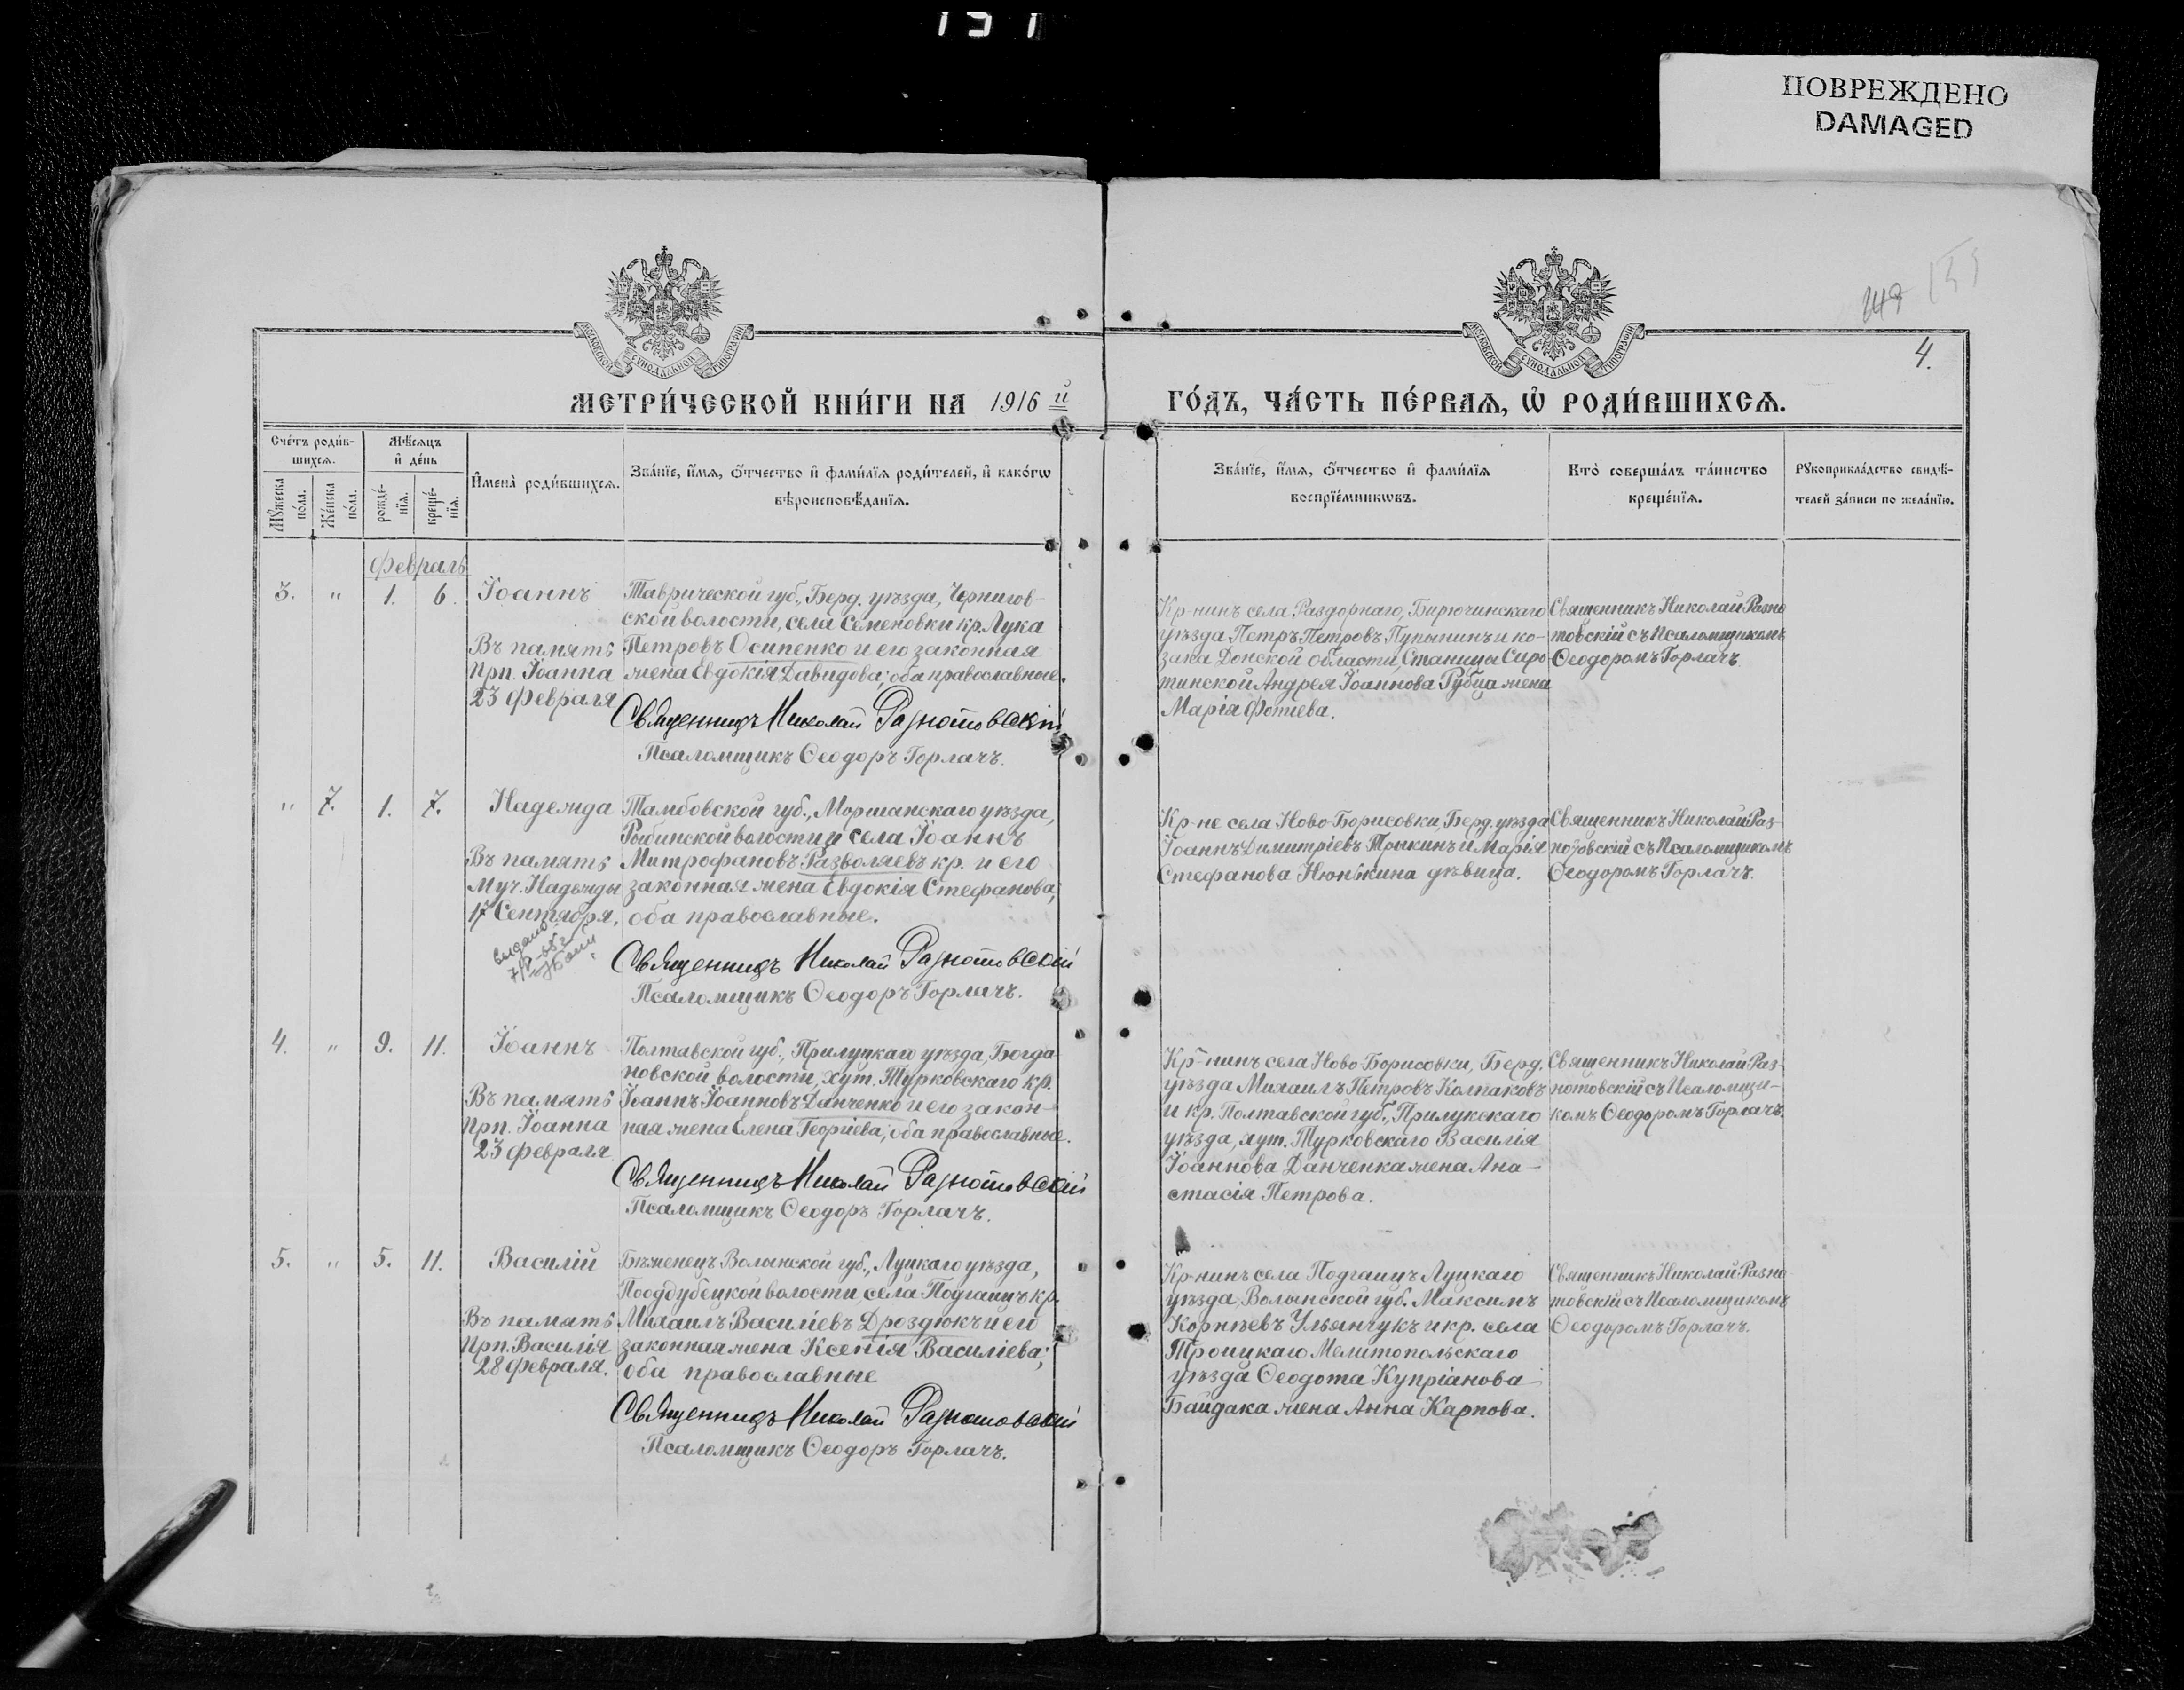 151
ПОВРЕЖДЕНО
DAMAGED
149
151
4.
МОСКОВСКОЙ СѴНОДАЛЬНОЙ ТИПОГРАФІИ
МОСКОВСКОЙ СѴНОДАЛЬНОЙ ТИПОГРАФІИ
МЕТРИ́ЧЕСКОЙ КНИ́ГИ НА 1916 й
ГО́ДЪ, ЧА́СТЬ ПЕ́РВАѦ, Ѡ҆ РОДИ́ВШИХСѦ.
Сче́тъ роди́в-
шихсѧ.
Мꙋ́жеска по́ла.
Же́нска по́ла.
Мѣ́сѧцъ
и҆ де́нь
рожде́-
нїѧ.
креще́-
нїѧ.
И҆мена̀ роди́вшихсѧ.
Зва́нїе, и҆́мѧ, ѻ҆́тчество и҆ фами́лїѧ роди́телей, и҆ како́гѡ
вѣроисповѣ́данїѧ.
Зва́нїе, и҆́мѧ, ѻ҆́тчество и҆ фами́лїѧ
воспрїе́мникѡвъ.
Кто̀ соверша́лъ та́инство
креще́нїѧ.
Рꙋкоприкла́дство свидѣ́-
телей за́писи по жела́нїю.
Февраль
3. " 1. 6. Іоаннъ
Въ память
Прп. Іоанна
23 февраля
Таврической губ., Берд. уѣзда, Чернигов-
ской волости, села Семеновки кр. Лука
Петровъ Осипенко и его законная
жена Евдокія Давидова; оба православные.
Священникъ Николай Разнотовскій
Псаломщикъ Ѳеодоръ Горлачъ.
Кр-нинъ села Раздорнаго, Бирючинскаго
уѣзда Петръ Петровъ Пупынинъ и ко-
зака Донской области, Станицы Сиро-
тинской Андрея Іоаннова Рубца жена
Марія Фотиева.
Священникъ Николай Разно
товскій съ Псаломщикомъ
Ѳеодоромъ Горлачъ.
" 7. 1. 7. Надежда
Въ память
Муч. Надежды
17 Сентября.
выдано
Тамбовской губ., Моршанскаго уѣзда,
Рыбинской волости и села Іоаннъ
Митрофановъ Разволяевъ кр. и его
законная жена Евдокія Стефанова,
оба православные.
Священникъ Николай Разнотовскій
Псаломщикъ Ѳеодоръ Горлачъ.
Кр-не села Ново-Борисовки, Берд. уѣзда
Іоаннъ Димитріевъ Трыкинъ и Марія
Стефанова Нюнькина дѣвица.
Священникъ Николай Раз-
нотовскій съ Псаломщикомъ
Ѳеодоромъ Горлачъ.
4. " 9. 11. Іоаннъ
Въ память
Прп. Іоанна
23 февраля
Полтавской губ., Прилуцкаго уѣзда, Богда
новской волости, хут. Турковскаго кр.
Іоаннъ Іоанновъ Данченко и его закон-
ная жена Елена Георгіева; оба православные.
Священникъ Николай Разнотовскій
Псаломщикъ Ѳеодоръ Горлачъ.
Кр-нинъ села Ново-Борисовки, Берд.
уѣзда Михаилъ Петровъ Колпаковъ
и кр. Полтавской губ., Прилукскаго
уѣзда, хут. Турковскаго Василія
Іоаннова Данченка жена Ана-
стасія Петрова.
Священникъ Николай Раз-
нотовскій съ Псаломщи-
комъ Ѳеодоромъ Горлачъ.
5. " 5. 11. Василій
Въ память
Прп. Василія
28 февраля.
Бѣженецъ Волынской губ., Луцкаго уѣзда,
Поддубецкой волости, села Подгаицъ кр.
Михаилъ Василіевъ Дроздюкъ и его
законная жена Ксенія Василіева;
оба православные
Священникъ Николай Разнотовскій
Псаломщикъ Ѳеодоръ Горлачъ.
Кр-нинъ села Подгаицъ Луцкаго
уѣзда, Волынской губ. Максимъ
Корнѣевъ Ульянчукъ и кр. села
Троицкаго Мелитопольскаго
уѣзда Ѳеодота Купріанова
Байдака жена Анна Карпова.
Священникъ Николай Разно
товскій съ Псаломщикомъ
Ѳеодоромъ Горлачъ.